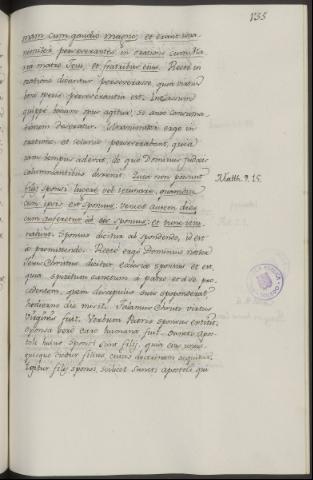 135
mam cum gaudio magno, et erant una-
nimiter perseverantes in oratione cum Ma-
ria matre Jesu, et fratribus eius. Recte in
oratione dicuntur perseverasse, quia virtus
boni operis perseverantia est. Incassum
quippe bonum opus agitur, si ante consuma-
tionem deseratur. Unanimiter ergo in
oratione, et ieiunio perseverabant, quia
iam tempus aderat, de quo Dominus Judaeis
calumniantibus dixerat. Quia non possunt
Matth. 9. 15.
filij sponsi lugere vel ieiunare, quamdiu
cum ipsis est sponsus: venient autem dies
cum auferetur ab eis sponsus: et tunc ieiu-
nabunt. Sponsus dicitur a spondendo, id est
a promittendo. Recte ergo Dominus noster
Jesus Christus dicitur ecclesiae sponsus et est,
quia spiritum sanctum a patre et a se pro-
cedentem, quem discipulis suis spoponderat,
hodierna die misit. Thalamus Christi uterus
Virginis fuit. Verbum Patris sponsus extitit,
sponsa vero caro humana fuit. Sancti apos-
toli huius sponsi sunt filij, quia eius unus-
quisque dicitur filius, cuius doctrinam sequitur.
Igitur filij sponsi, scilicet sancti apostoli qui